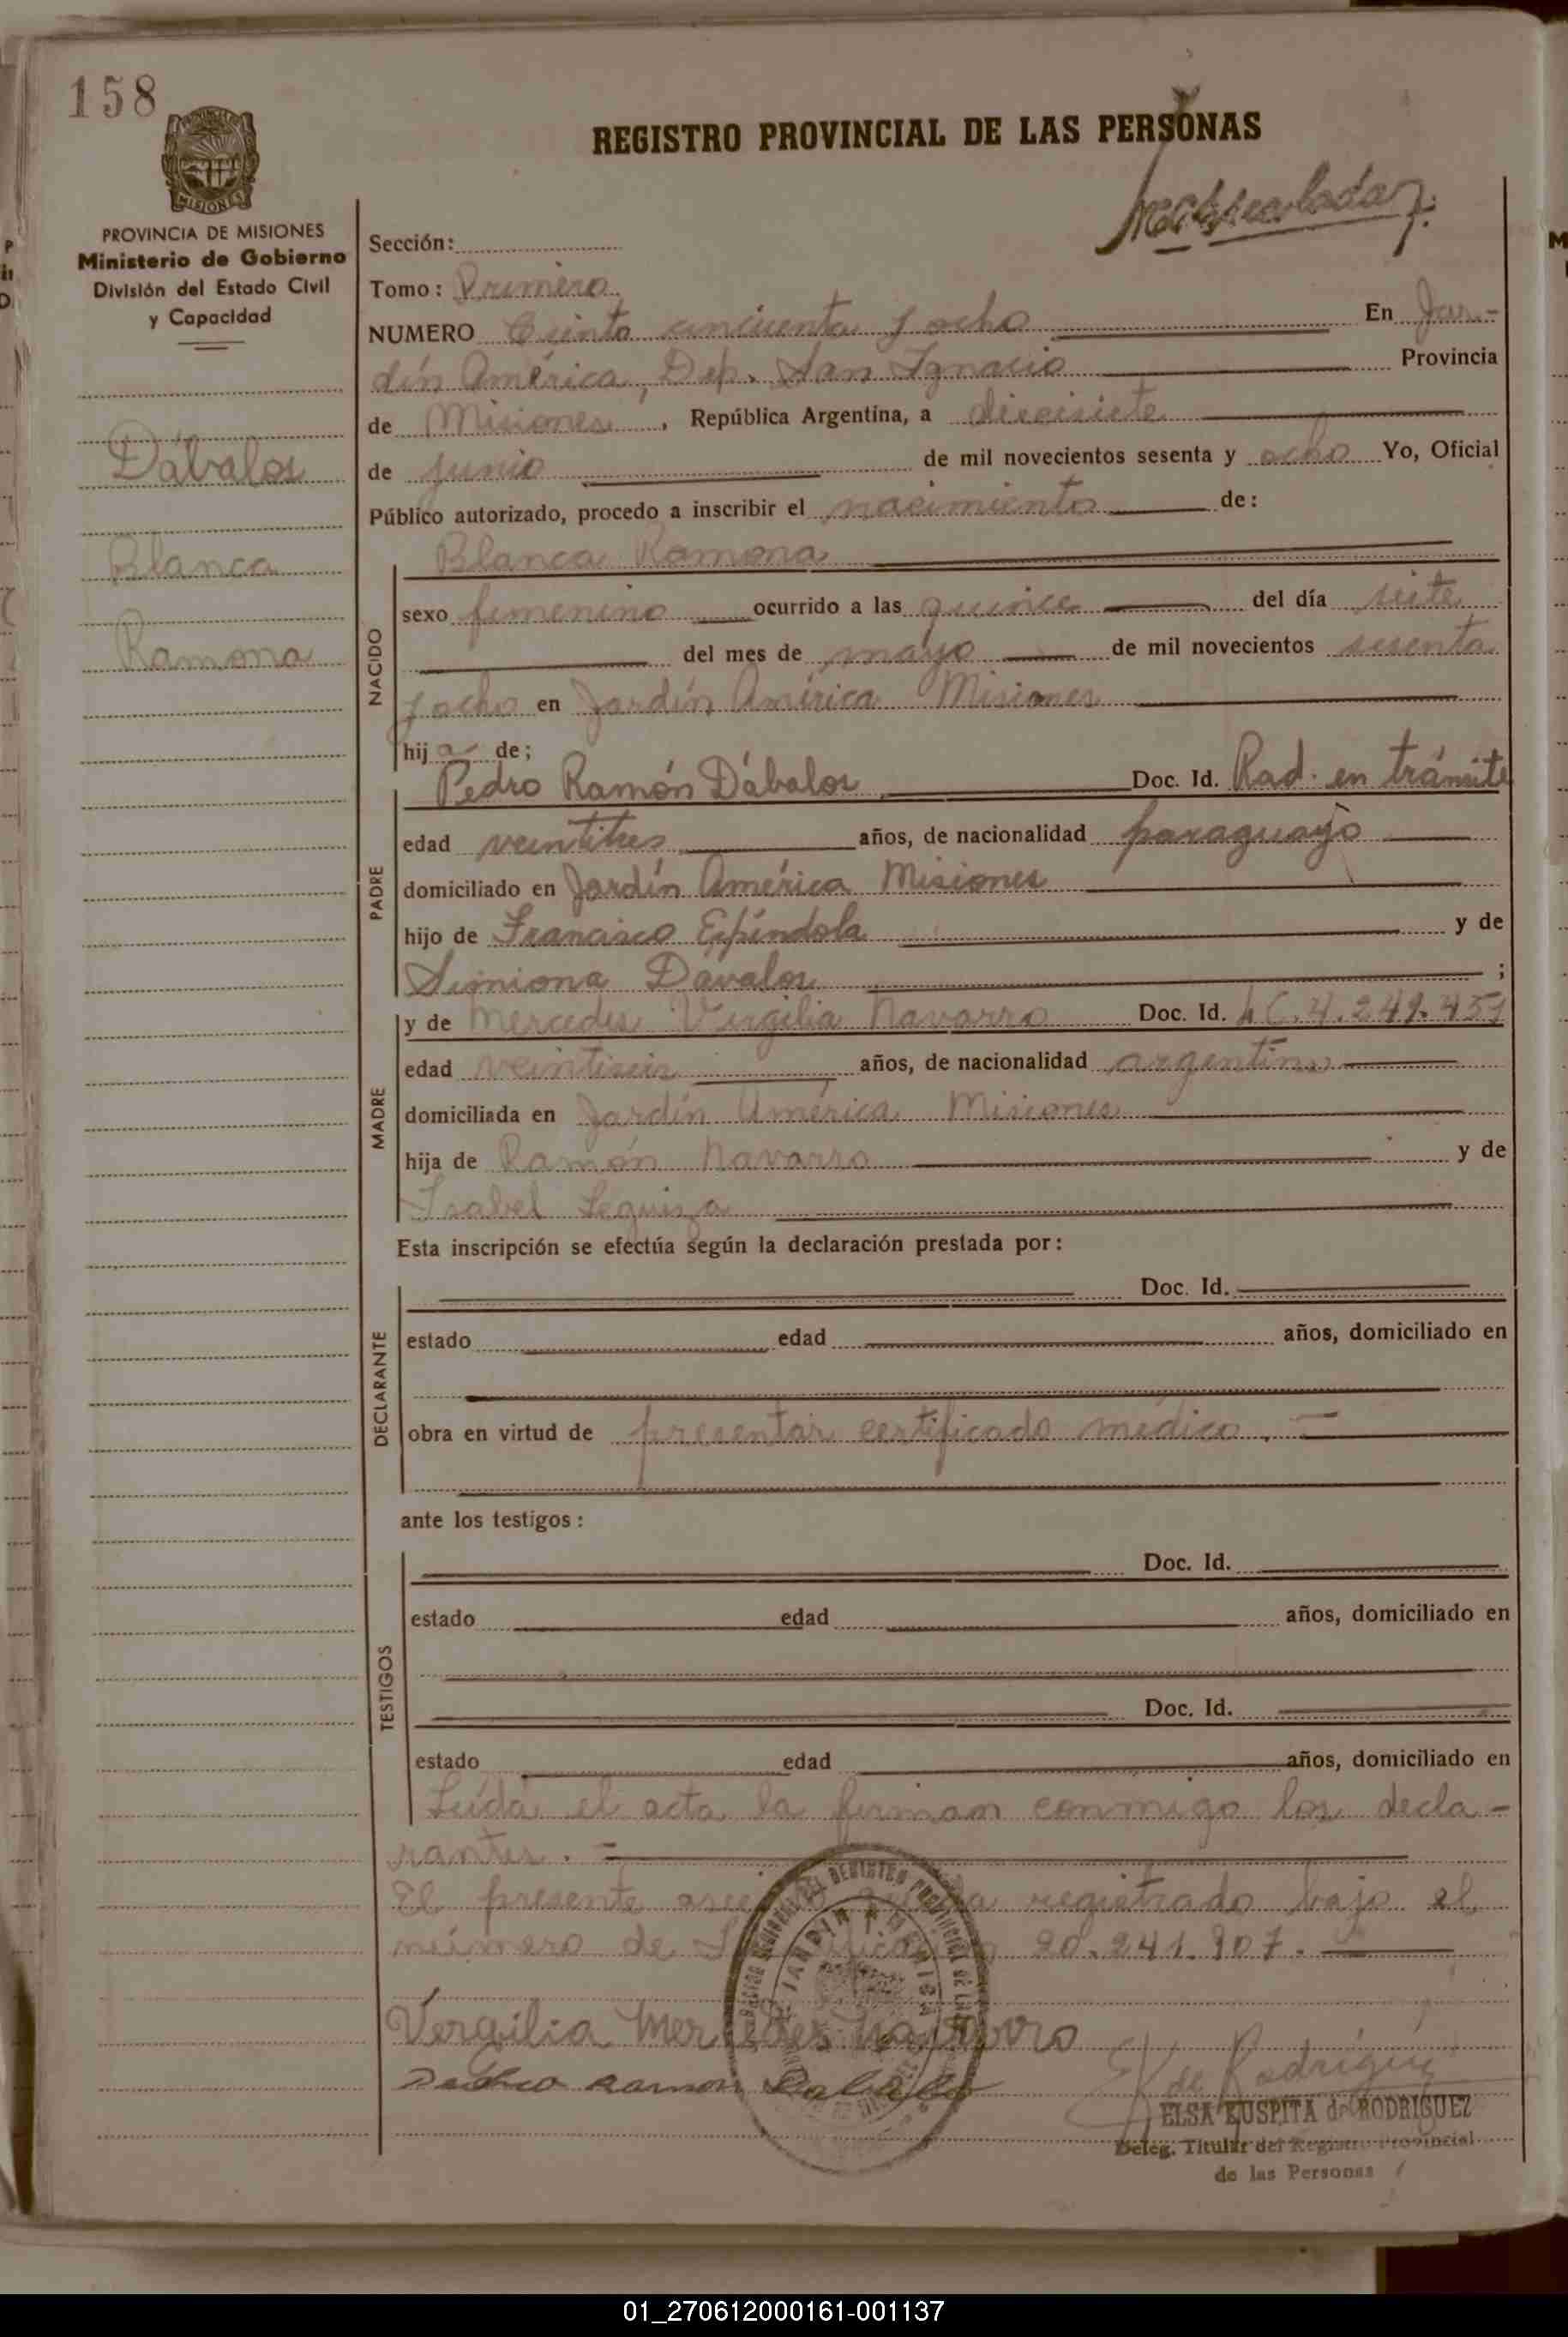 158
MISIONES
PROVINCIA DE MISIONES
Ministerio de Gobierno
División del Estado Civil
y Capacidad
Dábalos
Blanca
Ramona
REGISTRO PROVINCIAL DE LAS PERSONAS
Sección:
Tomo: Primero
NUMERO Ciento cincuenta y ocho En Jar-
dín América, Dep. San Ignacio Provincia
de Misiones, República Argentina, a diecisiete
de junio de mil novecientos sesenta y ocho Yo, Oficial
Público autorizado, procedo a inscribir el nacimiento de:
Blanca Ramona
NACIDO
sexo femenino ocurrido a las quince del día siete
del mes de mayo de mil novecientos sesenta
y ocho en Jardín América Misiones
hija de;
PADRE
Pedro Ramón Dábalos Doc. Id. Rad. en trámite
edad veintitres años, de nacionalidad paraguayo
domiciliado en Jardín América Misiones
hijo de Francisco Espíndola y de
Simiona Dávalos ;
MADRE
y de Mercedes Virgilia Navarro Doc. Id. L.C. 4.249.451
edad veintiseis años, de nacionalidad argentina
domiciliada en Jardín América Misiones
hija de Ramón Navarro y de
Isabel Leguiza
Esta inscripción se efectúa según la declaración prestada por:
DECLARANTE
Doc. Id.
estado edad años, domiciliado en
obra en virtud de presentar certificado médico.
ante los testigos:
TESTIGOS
Doc. Id.
estado edad años, domiciliado en
Doc. Id.
estado edad años, domiciliado en
Leída el acta la firman conmigo los decla-
rantes.
El presente registrado bajo el
número de 20.241.907.
JARDIN AMERICA
Vergilia Mercedes Navarro
Pedro Ramon Dabalos
E K de Rodríguez
ELSA KUSPITA de RODRIGUEZ
Deleg. Titular del Registro Provincial
de las Personas
01_270612000161-001137